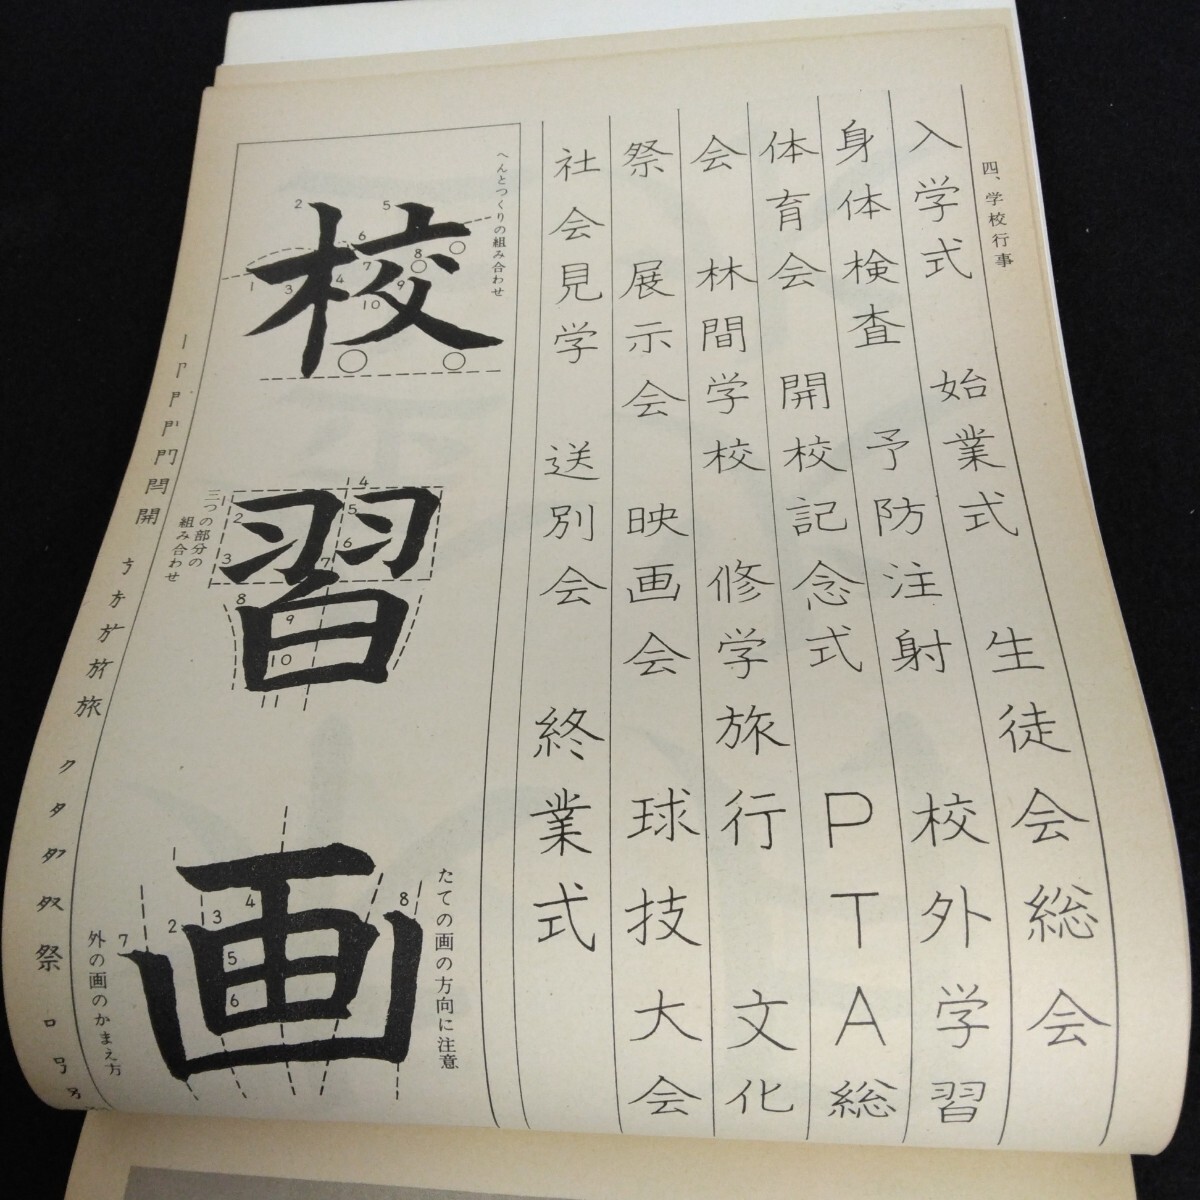 四、学校行事
入学式　始業式　生徒会総会
身体検査　予防注射　校外学習
体育会　開校記念式　PTA総
会　林間学校　修学旅行　文化
祭　展示会　映画会　球技大会
社会見学　送別会　終業式
へんとつくりの組み合わせ
校
1 2 3 4 5 6 7 8 9 10
三つの部分の
組み合わせ
習
1 2 3 4 5 6 7 8 9 10 11
たての画の方向に注意
画
1 2 3 4 5 6 7 8
外の画のかまえ方
門開
方 旅
ク タ 祭
口 号